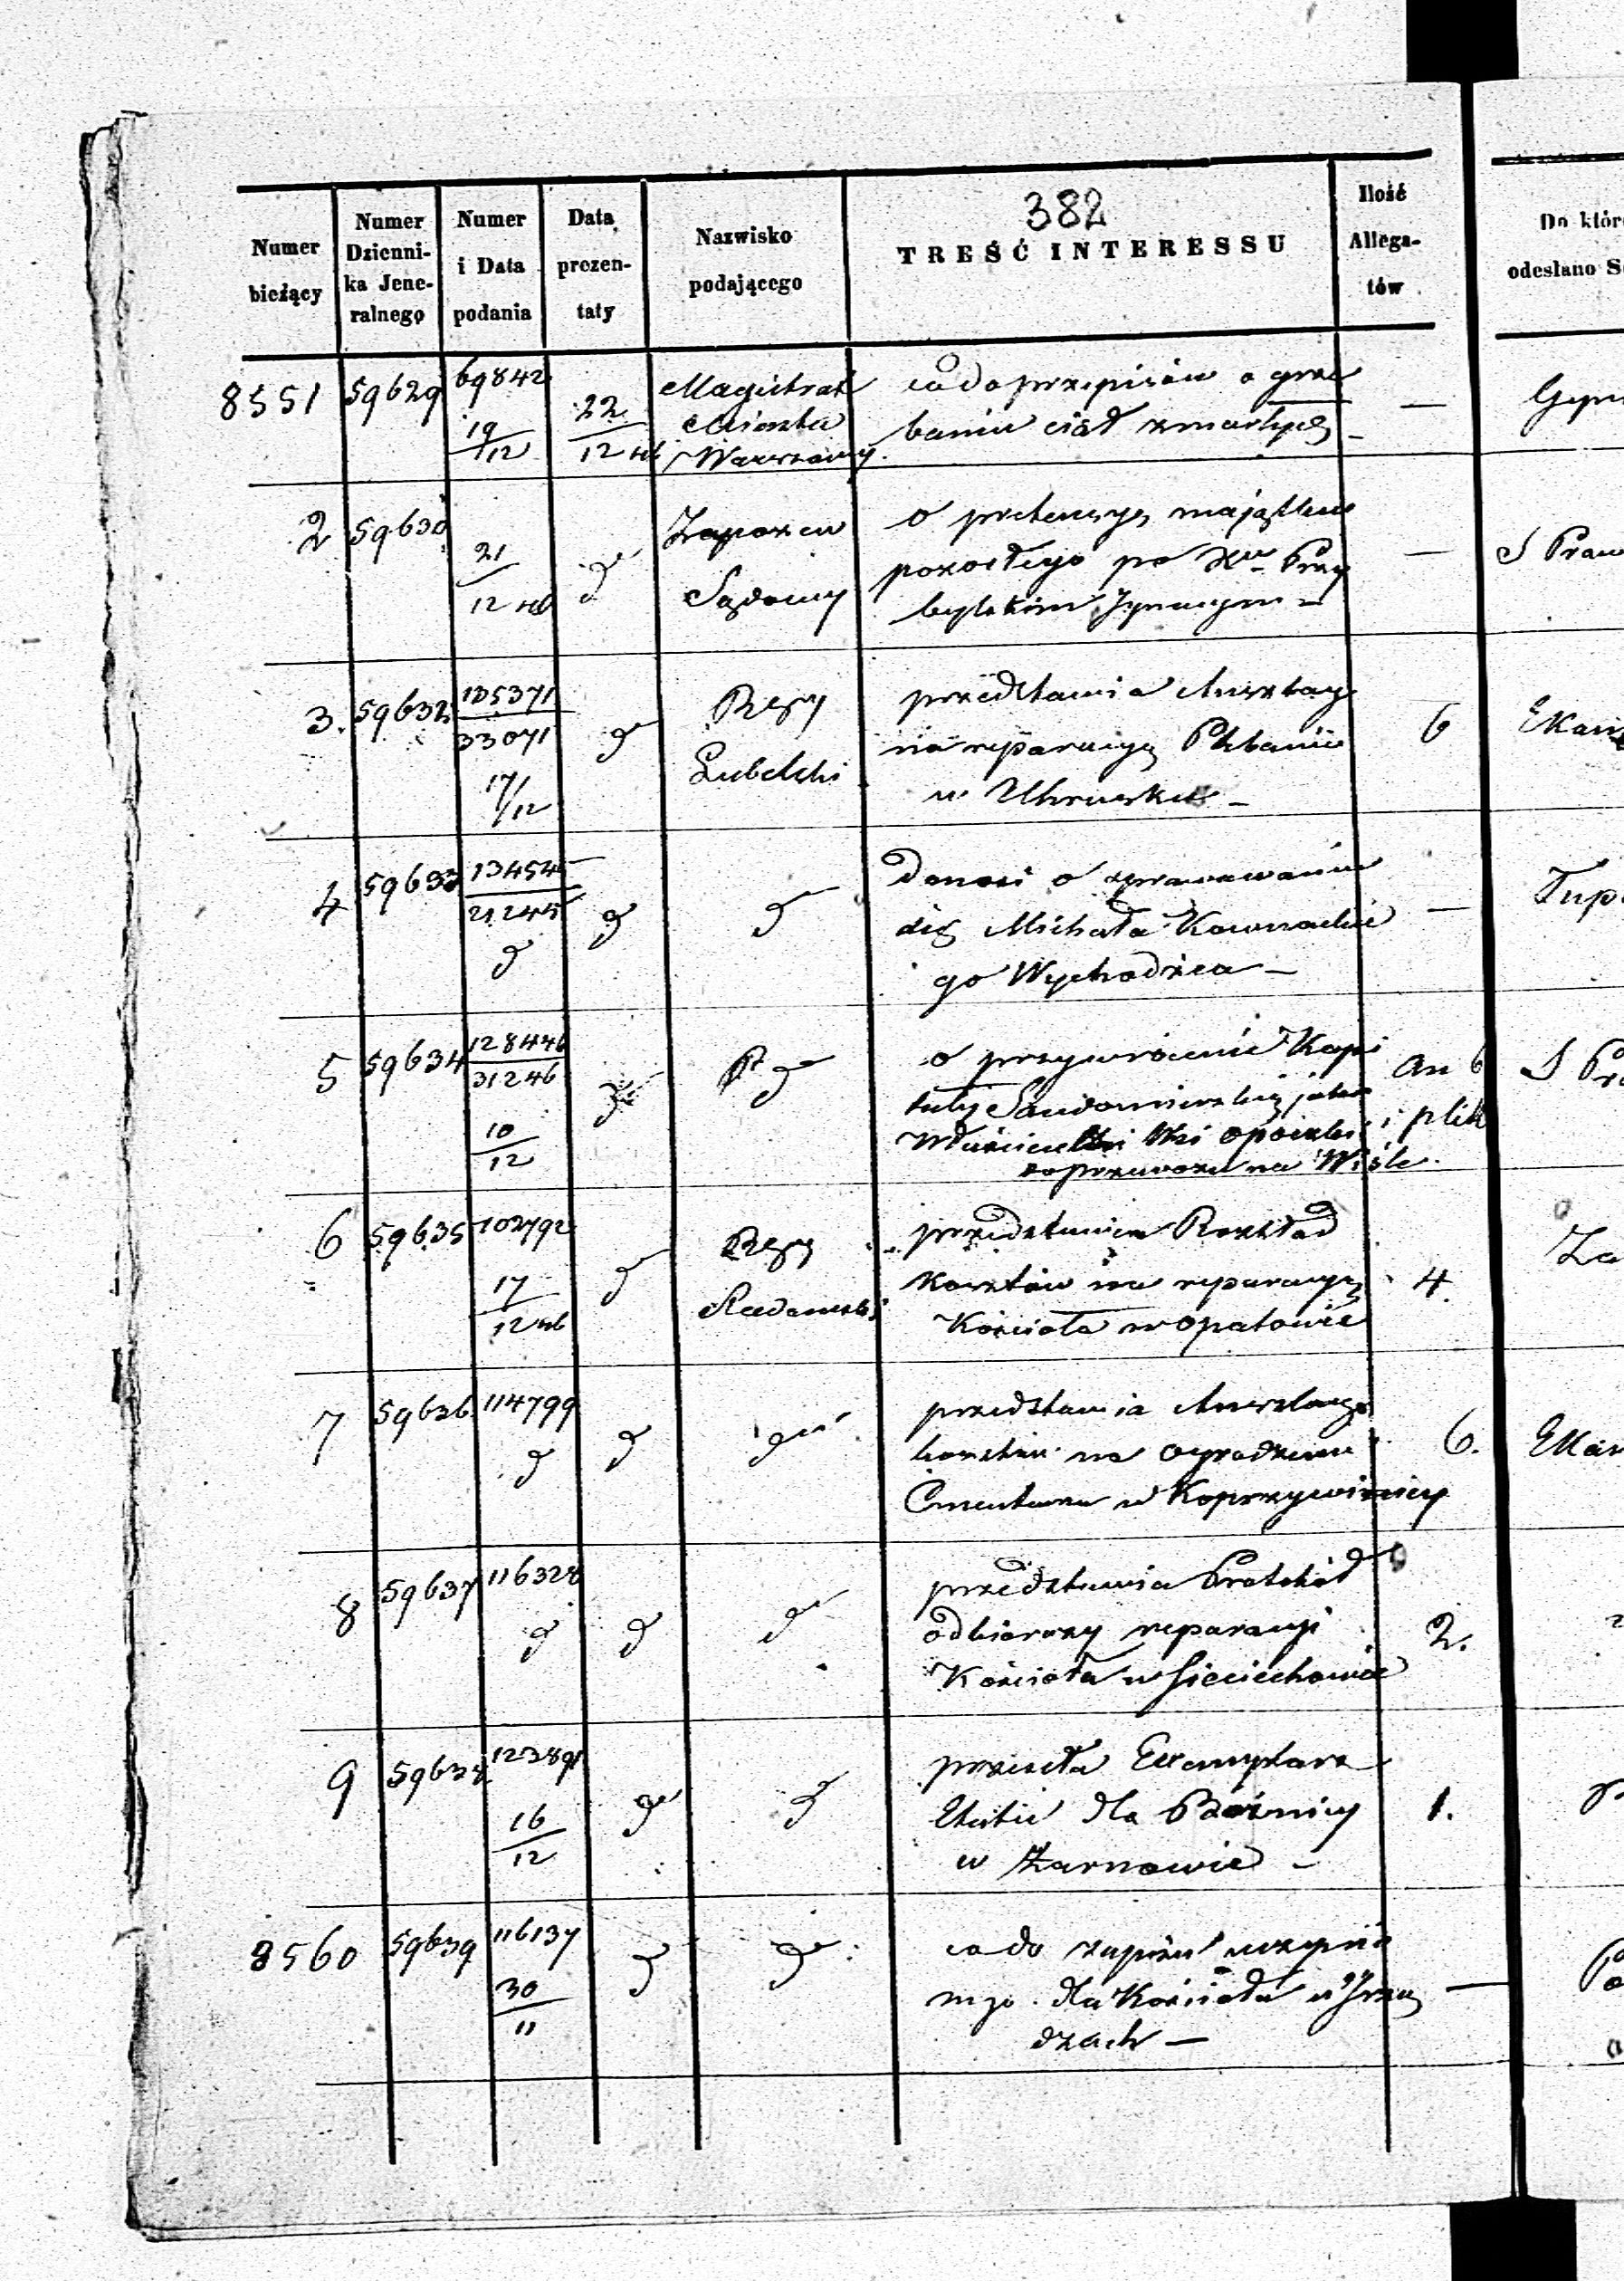 382
Numer bieżący
Numer Dzienni-ka Jene-ralnego
Numer i Data podania
Data prezen-taty
Nazwisko podającego
TREŚĆ INTERESSU
Ilość Allega-tów
Do któr
odesłano S
8551 59629 69842 19/12 22/12 46 Magistrat Miasta Warszawy
co do przepisów o grze
baniu ciał zmarłych —
2 59630 21/12 46 d Zapozew Sądowy
o pretensye majątku
pozostłego po Xu Przy
bylskim Ignacym — — S Praw
3. 59632 135371/33071 17/12 d Rząd Gubelski
przedstawia Anszlag
na reparacyę Plebanii
w Uhrusku — 6 Ekan
4 59633 13454/21245 d d d
donosi o sprawowaniu
się Michała Kownackie
go Wychodźca — —
5 59634 128446/31246 10/12 d d
o przywrócenie Kapi
tuły Sandomierskiej jako
Właścicielki Wsi Opoczki
do przewozu na Wiśle. an 6 i plik
6 59635 102792 17/12 46 d Rząd Radomski
przedstawia Rozkład
kosztów na reparacyę
Kościoła w Opatowie 4. Za
7 59636 114799 d d d
przedstawia Anszlag
kosztów na ogrodzenie
Cmentarza w Koprzywnicy 6. Ekan
8 59637 116328 d d d
przedstawia Protokół
odbiorczy reparacyi
Kościoła w Sieciechowie 2.
9 59638 12389 16/12 d d
przesyła Exemplarz
Etatu dla Bożnicy
w Żarnowie — 1.
8560 59639 116137 30/11 d d
co do zapisu uczynio
nego dla Kościoła w Irzą
dzach — —